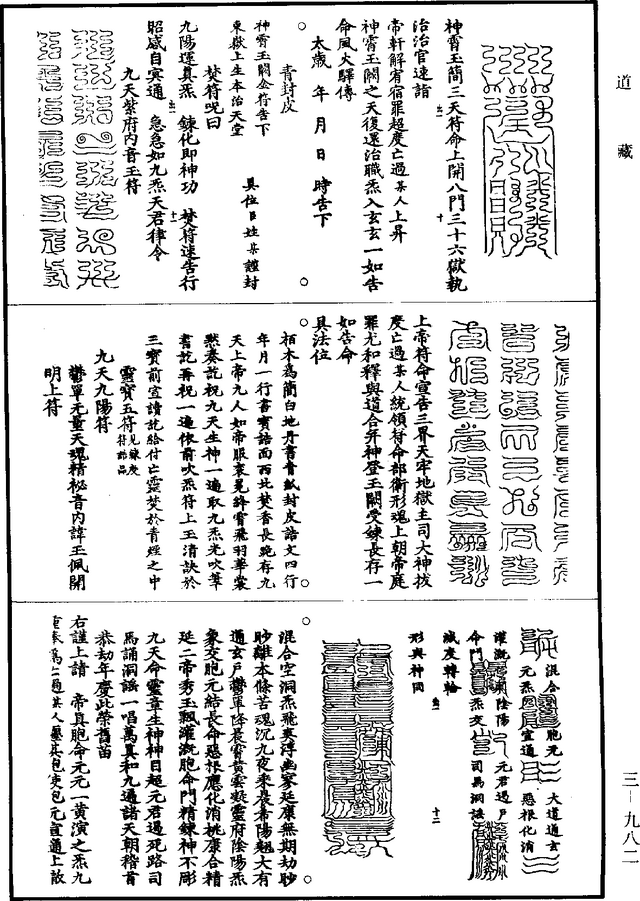 道藏
神霄玉簡三天符命上開八門三十六獄執
治治官速詣
帝軒解宥宿罪超度亡過某人上昇
神霄玉闕之天復還治職炁入玄玄一如告
命風火驛傳
太歲 年 月 日 時告下
青封皮
神霄玉闕金符告下
東獄上生本治天堂
具位臣姓某謹封
焚符呪曰
九陽運真炁 鍊化即神功 焚符速告行
昭感自冥通 急急如九炁天君律令
九天紫府內音玉符
上帝符命宣告三界天牢地獄主司大神拔
度亡過某人統領符命部衛形魂上朝帝庭
罪尤和釋與道合并神登玉闕受鍊長存一
如告命
具法位
栢木為簡白地丹書青紙封皮誥文四行
年月一行書寶誥面西北焚香長跪存九
天上帝九人如帝服衮冕絳霄飛羽華裳
默奏訖祝九天生神一遍取九炁光吹筆
書訖再祝一遍依前吹炁符上玉清訣於
三寶前宣讀訖給付亡靈焚於青烟之中
靈寶五符見鍊度符誥品
九天九陽符
鬱單无量天魂精祕音內諱玉佩開
明上符
混合 胞元 大道通玄
元炁 宣通 惡根化消
灌溉 陰陽 元君過戶
命門 炁交 司馬洞謠
滅度轉輪
形與神同
混合空洞炁飛爽浮幽寥延康無期劫眇
眇離本條苦魂沉九夜乘晨希陽翹大有
通玄戶鬱單降晨霄黃雲凝靈府陰陽炁
象交胞元結長命惡根應化消桃康合精
延二帝秀玉飄灌溉胞命門精鍊神不彫
九天命靈章生神神日超元君過死路司
馬誦洞謠一唱萬真和九遍諸天朝稽首
恭劫年慶此榮舊苗
右謹上請 帝真胞命元元一黃演之炁九